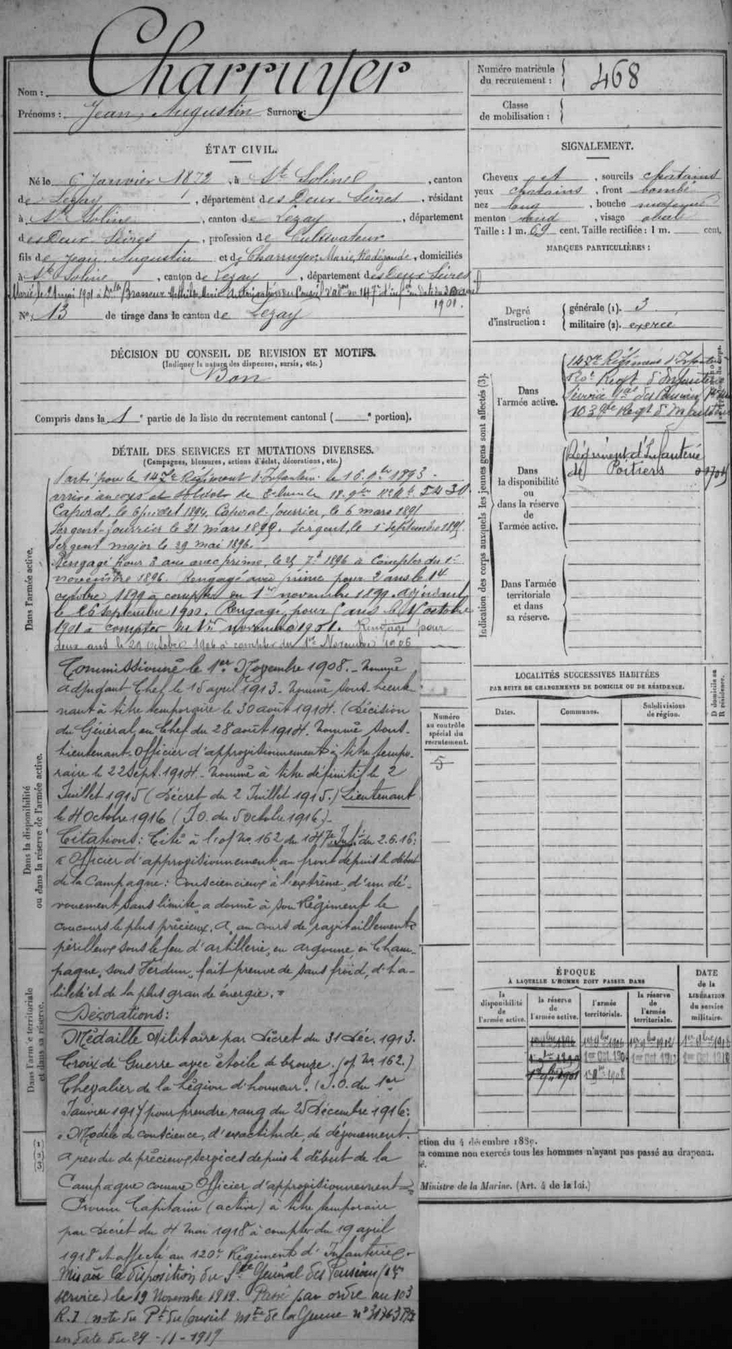 Nom : Charruyer
Prénoms : Jean Augustin Surnom :
Numéro matricule du recrutement : 468
Classe de mobilisation :
ÉTAT CIVIL.
Né le 6 Janvier 1872, à Ste Soline, canton
de Lezay, département des Deux Sèvres, résidant
à Ste Soline, canton de Lezay, département
des Deux Sèvres, profession de Cultivateur
fils de Jean Augustin et de Charruyer Marie Radégonde, domiciliés
à Ste Soline, canton de Lezay, département des Deux Sèvres
Marié le 2 mai 1901 à Dlle Brasseur
1901.
N° 13 de tirage dans le canton de Lezay
SIGNALEMENT.
Cheveux et, sourcils chatains
yeux chatains, front bombé
nez long, bouche moyenne
menton rond, visage ovale
Taille : 1 m. 69 cent. Taille rectifiée : 1 m. cent.
MARQUES PARTICULIÈRES :
Degré d'instruction : générale (1). 3
militaire (2). exercé
DÉCISION DU CONSEIL DE REVISION ET MOTIFS.
(Indiquer la nature des dispenses, sursis, etc.)
Bon
Compris dans la 1e partie de la liste du recrutement cantonal ( e portion).
DÉTAIL DES SERVICES ET MUTATIONS DIVERSES.
(Campagnes, blessures, actions d'éclat, décorations, etc.)
Parti pour le 147e Régiment d'Infanterie le 16 9bre 1893
arrivé au corps et soldat de 2e classe
Caporal, le 6 juillet 1894, Caporal fourrier, le 6 mars 1895
Sergent fourrier le 21 mars 1895. Sergent, le 1er Septembre 1895
Sergent major le 29 mai 1896.
Rengagé pour 3 ans avec prime, le 25 7bre 1896 à compter du 1er
novembre 1896. Rengagé avec prime pour 2 ans le 14
octobre 1899 à compter du 1er novembre 1899. Adjudant
le 26 septembre 1900. Rengagé pour 5 ans le octobre
1901 à compter du 1er novembre 1901. Rengagé pour
deux ans le 29 octobre 1906 à compter du 1er Novembre 1906
Commissionné le 1er Novembre 1908. Nommé
Adjudant Chef le 15 avril 1913. Nommé Sous-lieute
nant à titre temporaire le 30 août 1914. (Décision
du Général en Chef du 28 août 1914. Nommé Sous-
lieutenant Officier d'approvisionnement à titre tempo
raire le 22 Sept. 1914. Nommé à titre définitif le 2
Juillet 1915 (Décret du 2 Juillet 1915.) Lieutenant
le 4 Octobre 1916 (J.O. du 5 octobre 1916).
Citations : Cité à l'of No 162 du 147e Inf. du 2.6.16 :
« Officier d'approvisionnement au front depuis le début
de la Campagne : consciencieux à l'extrême, d'un dé-
vouement sans limite a donné à son Régiment le
concours le plus précieux. A, au cours de ravitaillements
périlleux sous le feu d'artillerie, en Argonne en Cham-
pagne, sous Verdun, fait preuve de sang froid, d'ha-
bileté et de la plus grande énergie. »
Décorations :
Médaille Militaire par Décret du 31 Déc. 1913.
Croix de Guerre avec étoile de bronze. (of No 162.)
Chevalier de la Légion d'honneur. (J.O. du 1er
Janvier 1917 pour prendre rang du 25 Décembre 1916 :
« Modèle de conscience, d'exactitude, de dévouement.
A rendu de précieux services depuis le début de la
Campagne comme Officier d'approvisionnement »
Promu Capitaine (active) à titre temporaire
par Décret du 4 Mai 1918 à compter du 19 avril
1918 et affecté au 120e Régiment d'Infanterie.
Mis à la disposition du Général des Pensions
service) le 19 Novembre 1919. Passé par ordre au 103
R.I. note du Mtre de la Guerre
en date du 29-11-1919
Dans l'armée active.
Dans la disponibilité ou dans la réserve de l'armée active.
Dans l'armée territoriale et dans sa réserve.
Indication des corps auxquels les jeunes gens sont affectés (3).
Dans l'armée active.
147e Régiment d'Infanterie
120e Regt d'Infanterie
103e Regt d'Infanterie
Dans la disponibilité ou dans la réserve de l'armée active.
Régiment d'Infanterie
de Poitiers
Dans l'armée territoriale et dans sa réserve.
Numéro au contrôle spécial du recrutement.
5
LOCALITÉS SUCCESSIVES HABITÉES
PAR SUITE DE CHANGEMENTS DE DOMICILE OU DE RÉSIDENCE.
Dates. Communes. Subdivisions de région. D domicile ou R résidence.
ÉPOQUE
À LAQUELLE L'HOMME DOIT PASSER DANS
DATE de la LIBÉRATION du service militaire.
la disponibilité de l'armée active. la réserve de l'armée active. l'armée territoriale. la réserve de l'armée territoriale.
(1)
(2)
(3)
ction du 4 décembre 1889.
comme non exercés tous les hommes n'ayant pas passé au drapeau.
Ministre de la Marine. (Art. 4 de la loi.)